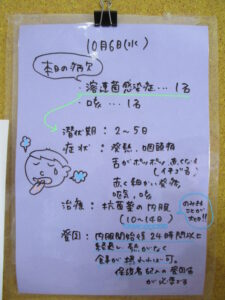 10月6日(水)
本日の病欠
・溶連菌感染症…1名
・咳…1名
潜伏期：2～5日
症状：発熱、咽頭痛
舌がポツポツ赤くなる
(イチゴ舌)
赤く細かい発疹、
嘔気、咳
治療：抗菌薬の内服
(10～14日)
のみきる
ことが
大切!!
登園：内服開始後24時間以上
経過し、熱がなく
食事が摂れれば可。
保護者記入の登園届
が必要です